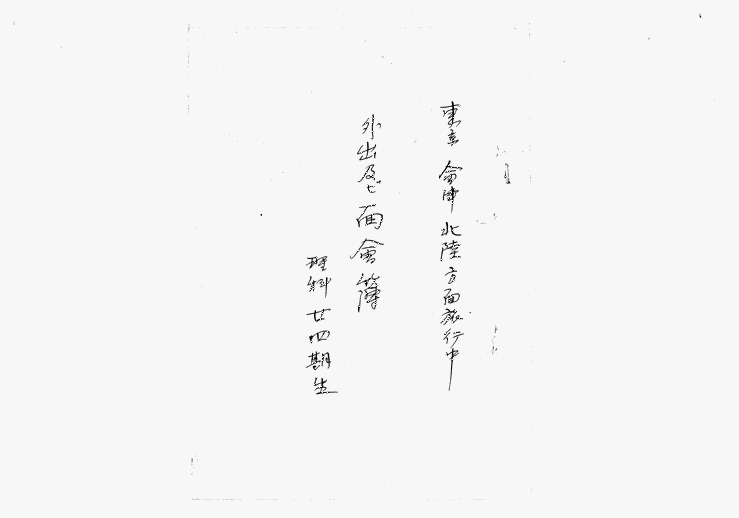 東京 會津 北陸方面旅行中
外出及ビ面會簿
理科廿四期生